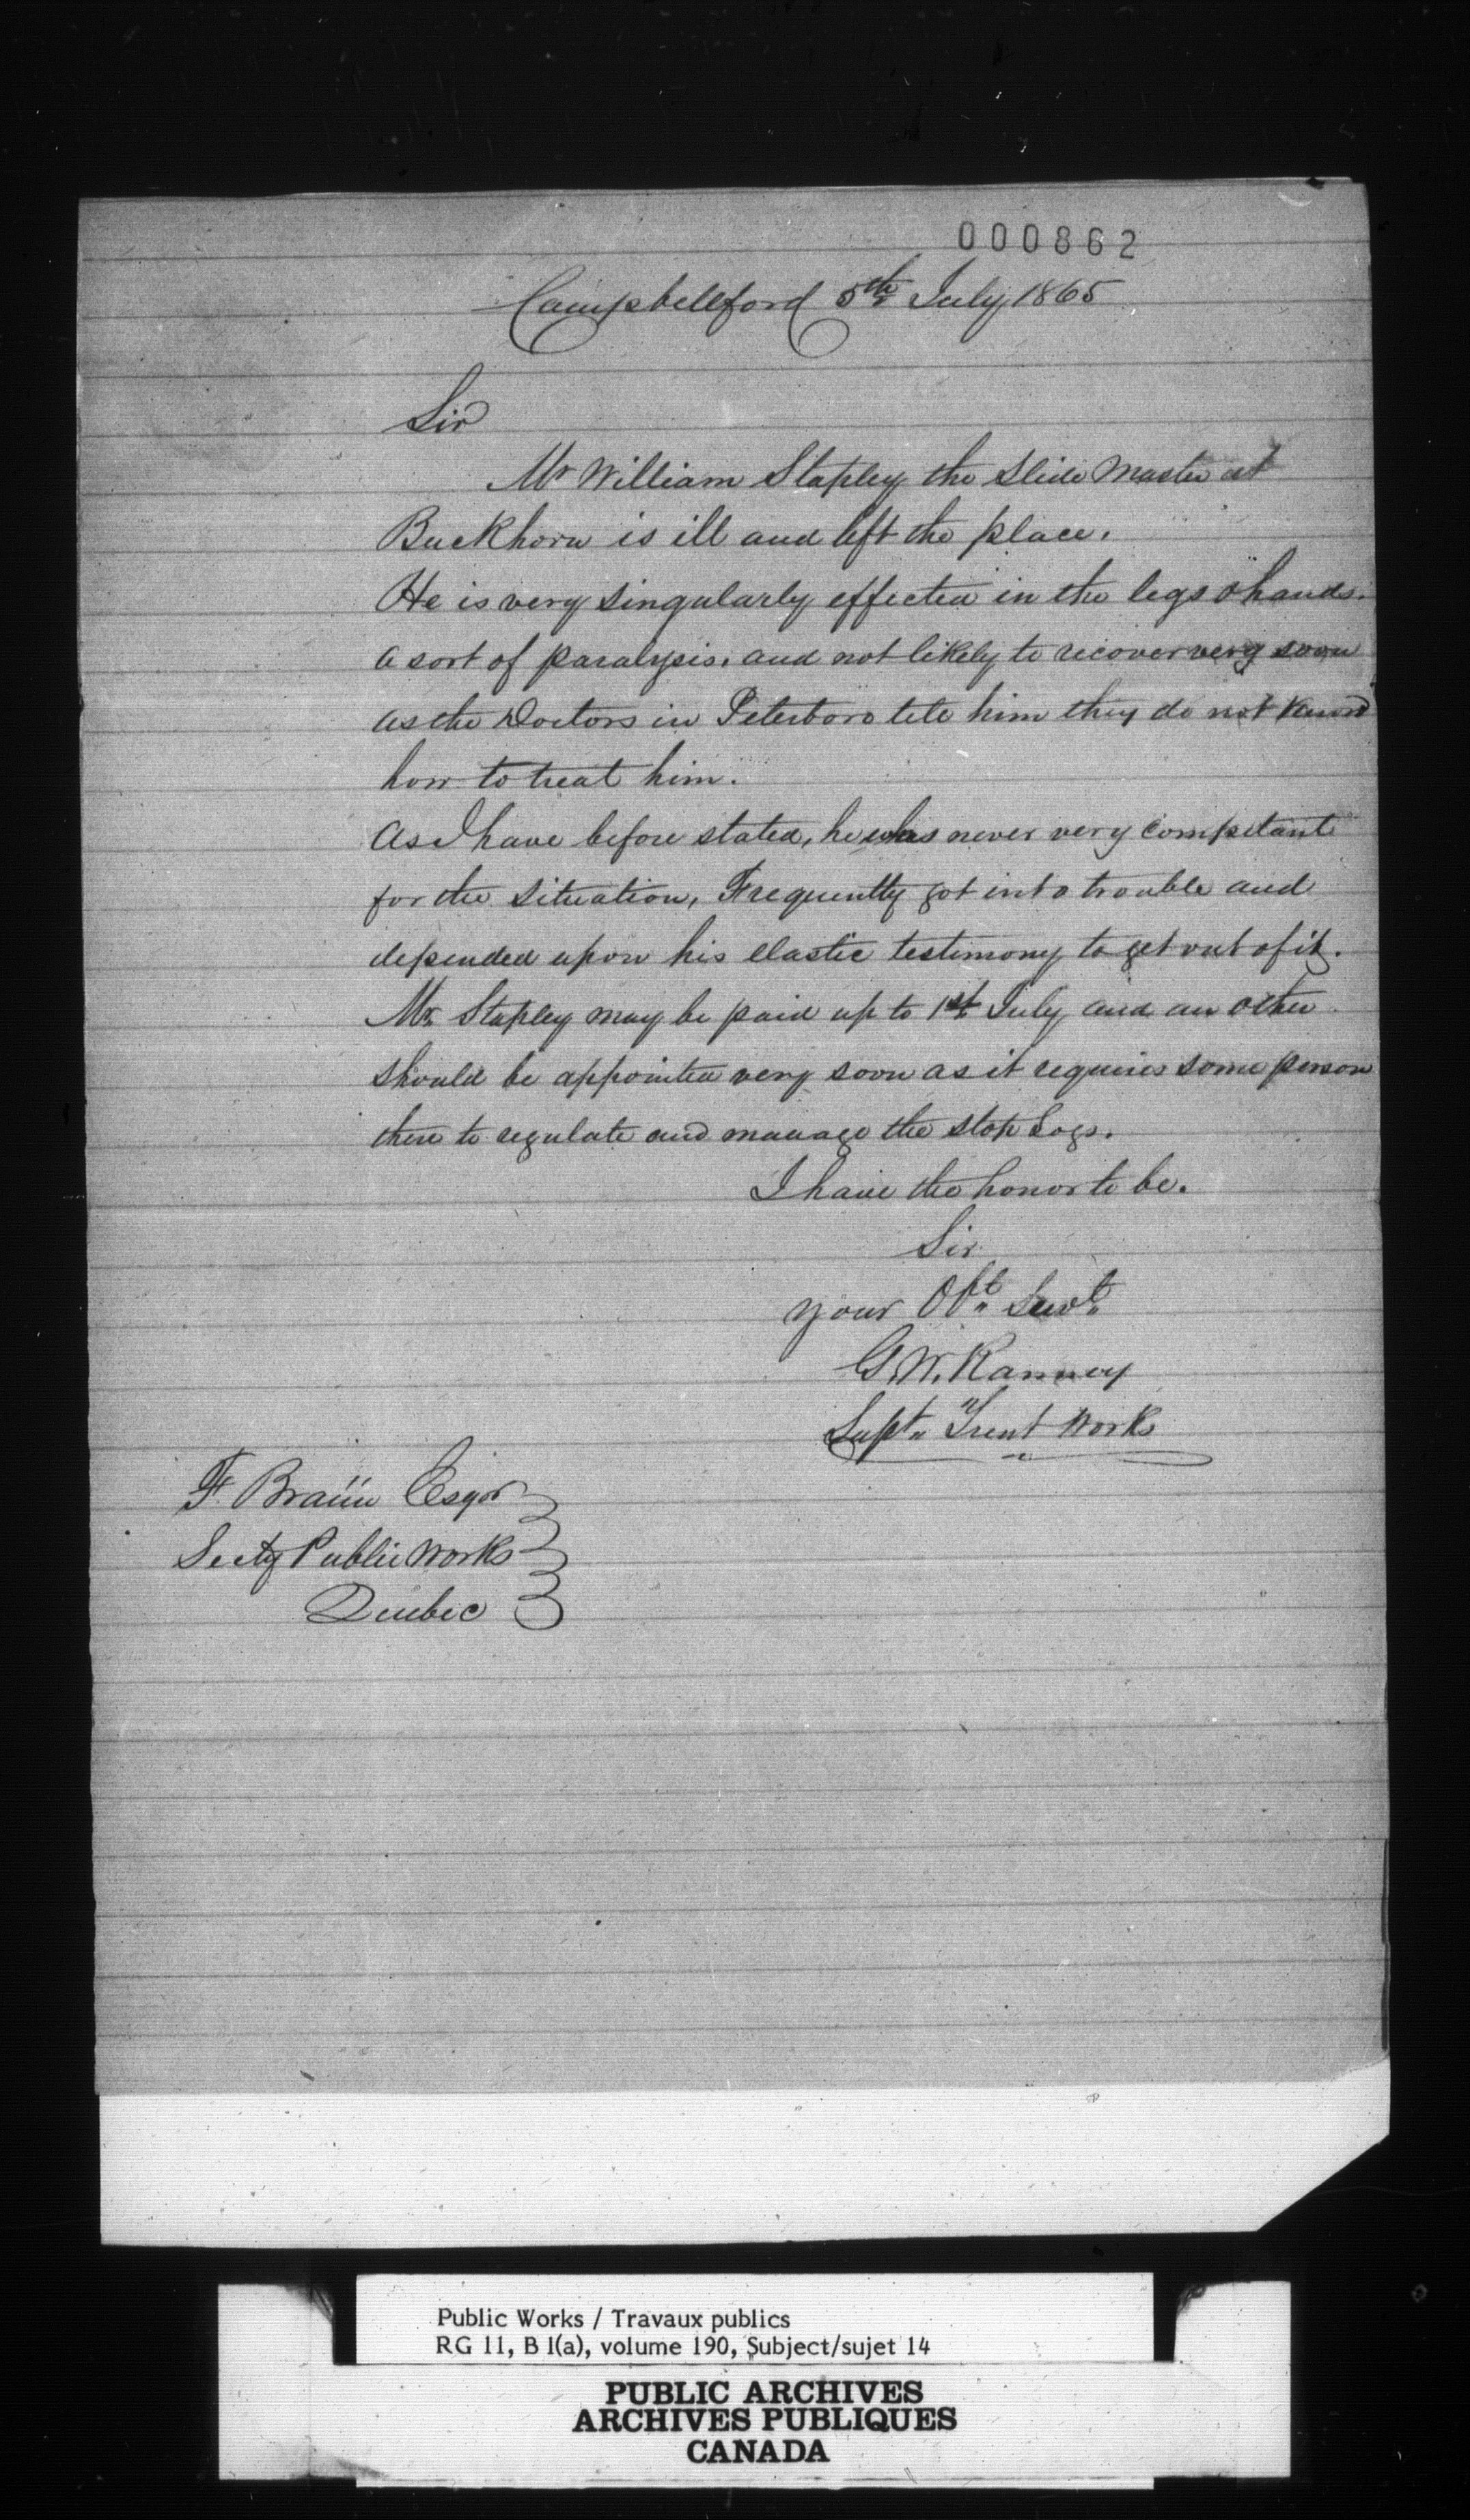 000862
Campbellford 5th July 1865
Sir
Mr William Stapley the Slide Master at
Buckhorn is ill and left the place.
He is very singularly effected in the legs & hands.
a sort of paralysis. and not likely to recover very soon
as the Doctors in Peterboro tele him they do not know
how to treat him.
As I have before stated, he was never very competant
for the situation, Frequently got into trouble and
depended upon his elastic testimony to get out of it.
Mr. Stapley may be paid up to 1st July and an other
should be appointed very soon as it requires some person
there to regulate and manage the stop Logs.
I have the honor to be.
Sir
your Obt. Servt.
G. W. Ranney
Supt. Trent Works
F. Braün Esqr
Secty Public Works
Quebec
Public Works / Travaux publics
RG 11, B 1(a), volume 190, Subject/sujet 14
PUBLIC ARCHIVES
ARCHIVES PUBLIQUES
CANADA